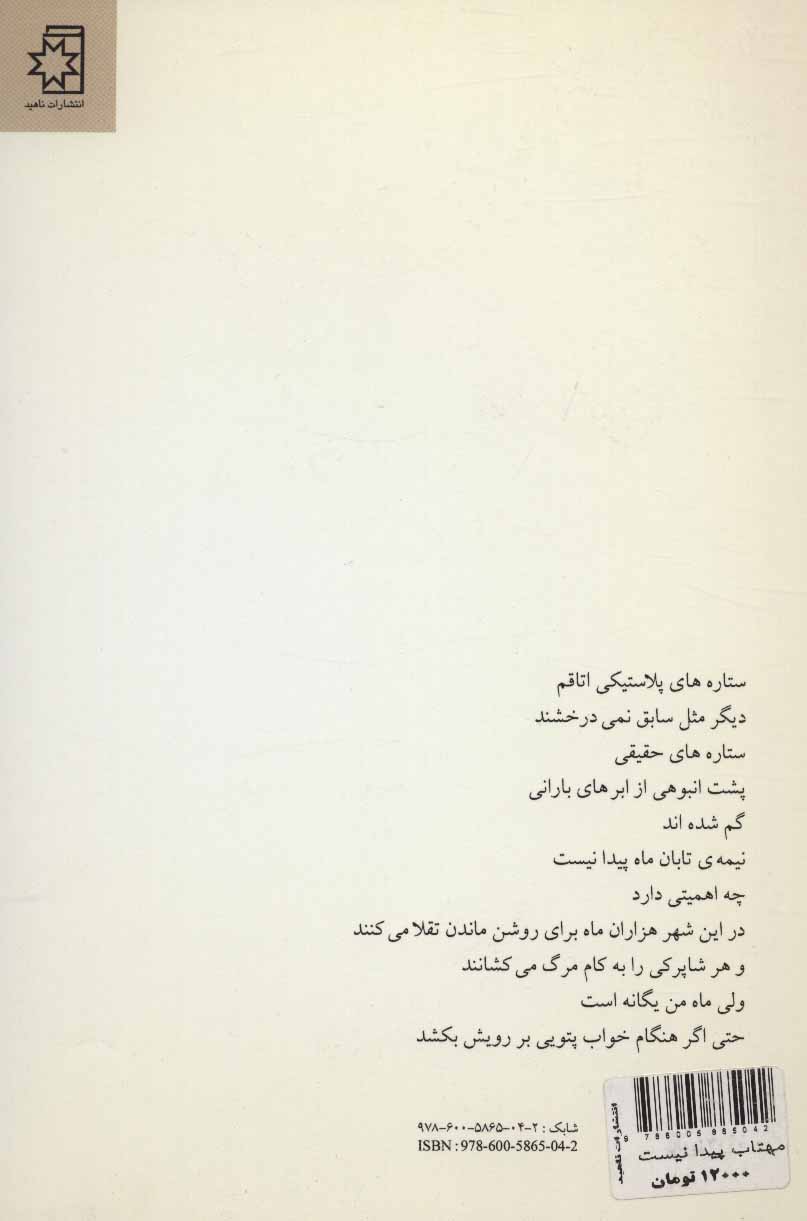 انتشارات ناهید
ستاره های پلاستیکی اتاقم
دیگر مثل سابق نمی درخشند
ستاره های حقیقی
پشت انبوهی از ابرهای بارانی
گم شده اند
نیمه ی تابان ماه پیدا نیست
چه اهمیتی دارد
در این شهر هزاران ماه برای روشن ماندن تقلا می کنند
و هر شاپرکی را به کام مرگ می کشانند
ولی ماه من یگانه است
حتی اگر هنگام خواب پتویی بر رویش بکشد
شابک : ۲-۰۴-۵۸۶۵-۶۰۰-۹۷۸
ISBN : 978-600-5865-04-2
انتشارات ناهید
9 786005 865042
مهتاب پیدا نیست
۱۲۰۰۰ تومان